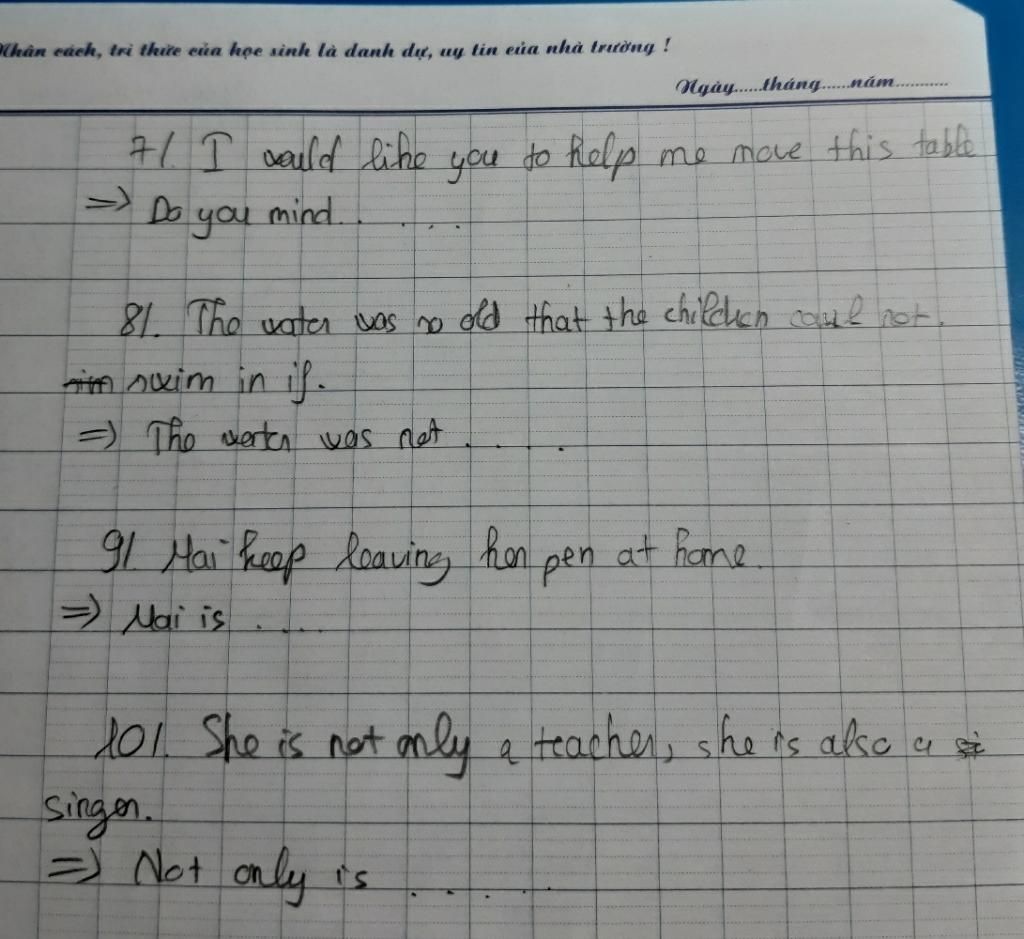 Nhân cách, tri thức của học sinh là danh dự, uy tín của nhà trường !
Ngày......tháng......năm...........
7/. I would like you to help me move this table
=> Do you mind. . . . . .
8/. The water was so old that the children could not.
swim in it.
=> The water was not . . . . .
9/ Mai keep leaving her pen at home.
=> Mai is . . . . .
10/. She is not only a teacher, she is also a
singer.
=> Not only is . . . . .